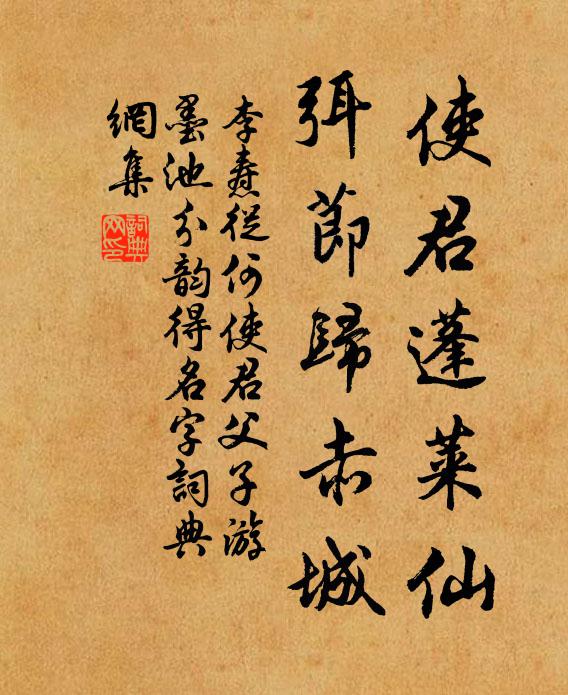 使君蓬萊仙
弭節歸赤城
李壽從何使君父子游
墨池分韵得名字詞典
網集
詞典網印